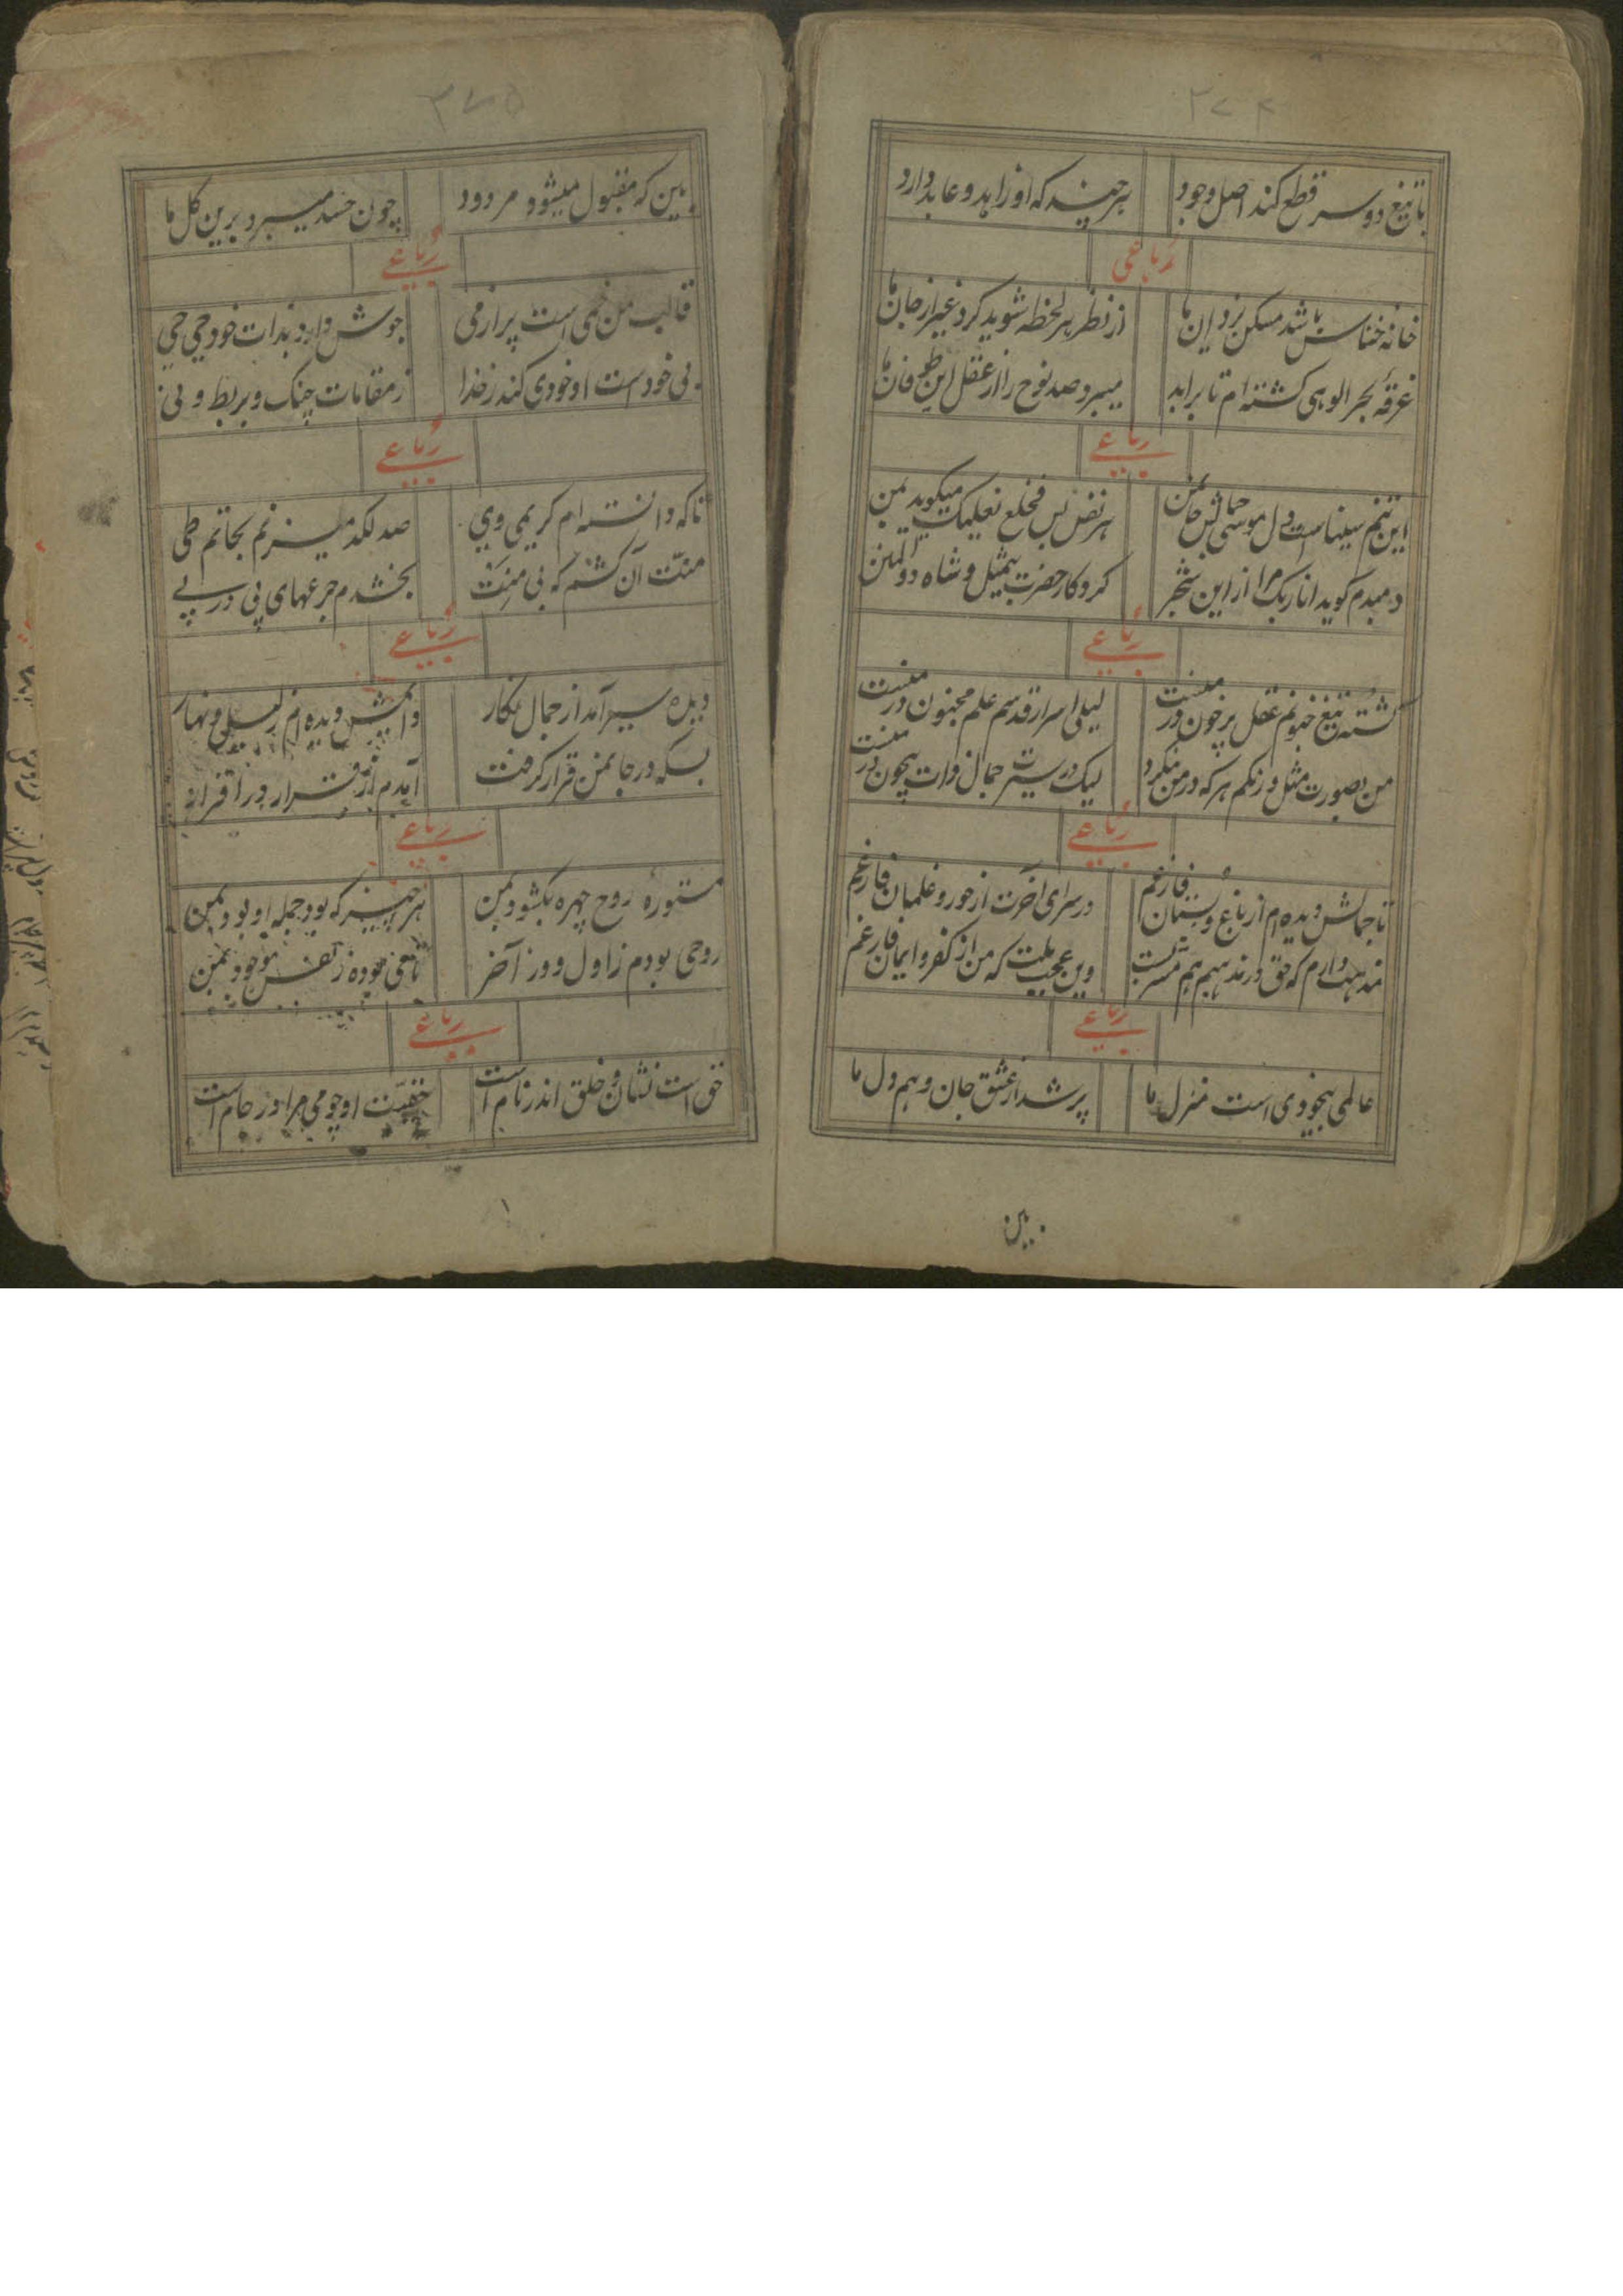 ۳۷۴
با تیغ دو سر قطع کند اصل وجود هر چند که او زاهد و عابد دارد
رباعی
خانهٔ خناس باشد مسکن نزد این ما از نظر هر لحظه شوید کرد غیر از جان ما
غرقهٔ بحر الوهی کشته‌ام تا بر ابد میبرد صد نوح را از عقل این طوفان ما
رباعی
این تنم سیناست دل موسی حیاتش جان من هر نفس پس فخلع نعلیک میکوید بمن
دمبدم کوید انا ربک مرا از این شجر کردکار حضرت بیمثل و شاه ذو المنن
رباعی
کشته تیغ جنونم عقل پر خون در منست لیلی اسرار قدسم علم مجنون در منست
من بصورت مثل و رنکم هر که در من بنکرد لیک در سیرت جمال ذات بیچون در منست
رباعی
تا جمالش دیده‌ام از باغ و بستان فارغم در سرای آخرت از حور و غلمان فارغم
مذهب دارم که حق در مذهبم هم مشربست وین عجب ملت که من از کفر و ایمان فارغم
رباعی
عالمی بیخودی است منزل ما پر شد از عشق جان و هم دل ما
بین
۳۷۵
بین که مقبول میشود مردود چون حسد میبرد برین کل ما
رباعی
قالب من خمی است پر از می جوش دارد بذات خود حی حی
بی خود است او خودی کند ز خدا ز مقامات چنک و بربط و نی
رباعی
تا که دانسته‌ام کریمی وی صد لکد میزنم بحاتم طی
منت آن کشم که بی منت بخشدم جرعهای پی در پی
رباعی
دیده سیر آمد از جمال نکار دایمش دیده‌ام ز لیل و نهار
بسکه در جانمن قرار کرفت آمدم از قرار در اقرار
رباعی
مستورهٔ روح چهره بکشود بمن هر چیز که بود جمله او بود بمن
روحی بودم ز اول و در آخر باقی بوده ز نفس موجود بمن
رباعی
حق است نشان و خلق اندر نام است حقیت او چو می مرا در جام است
۱